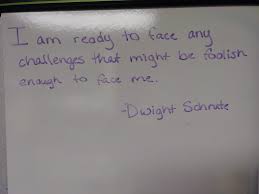 I am ready to face any
challenges that might be foolish
enough to face me.
-Dwight Schrute